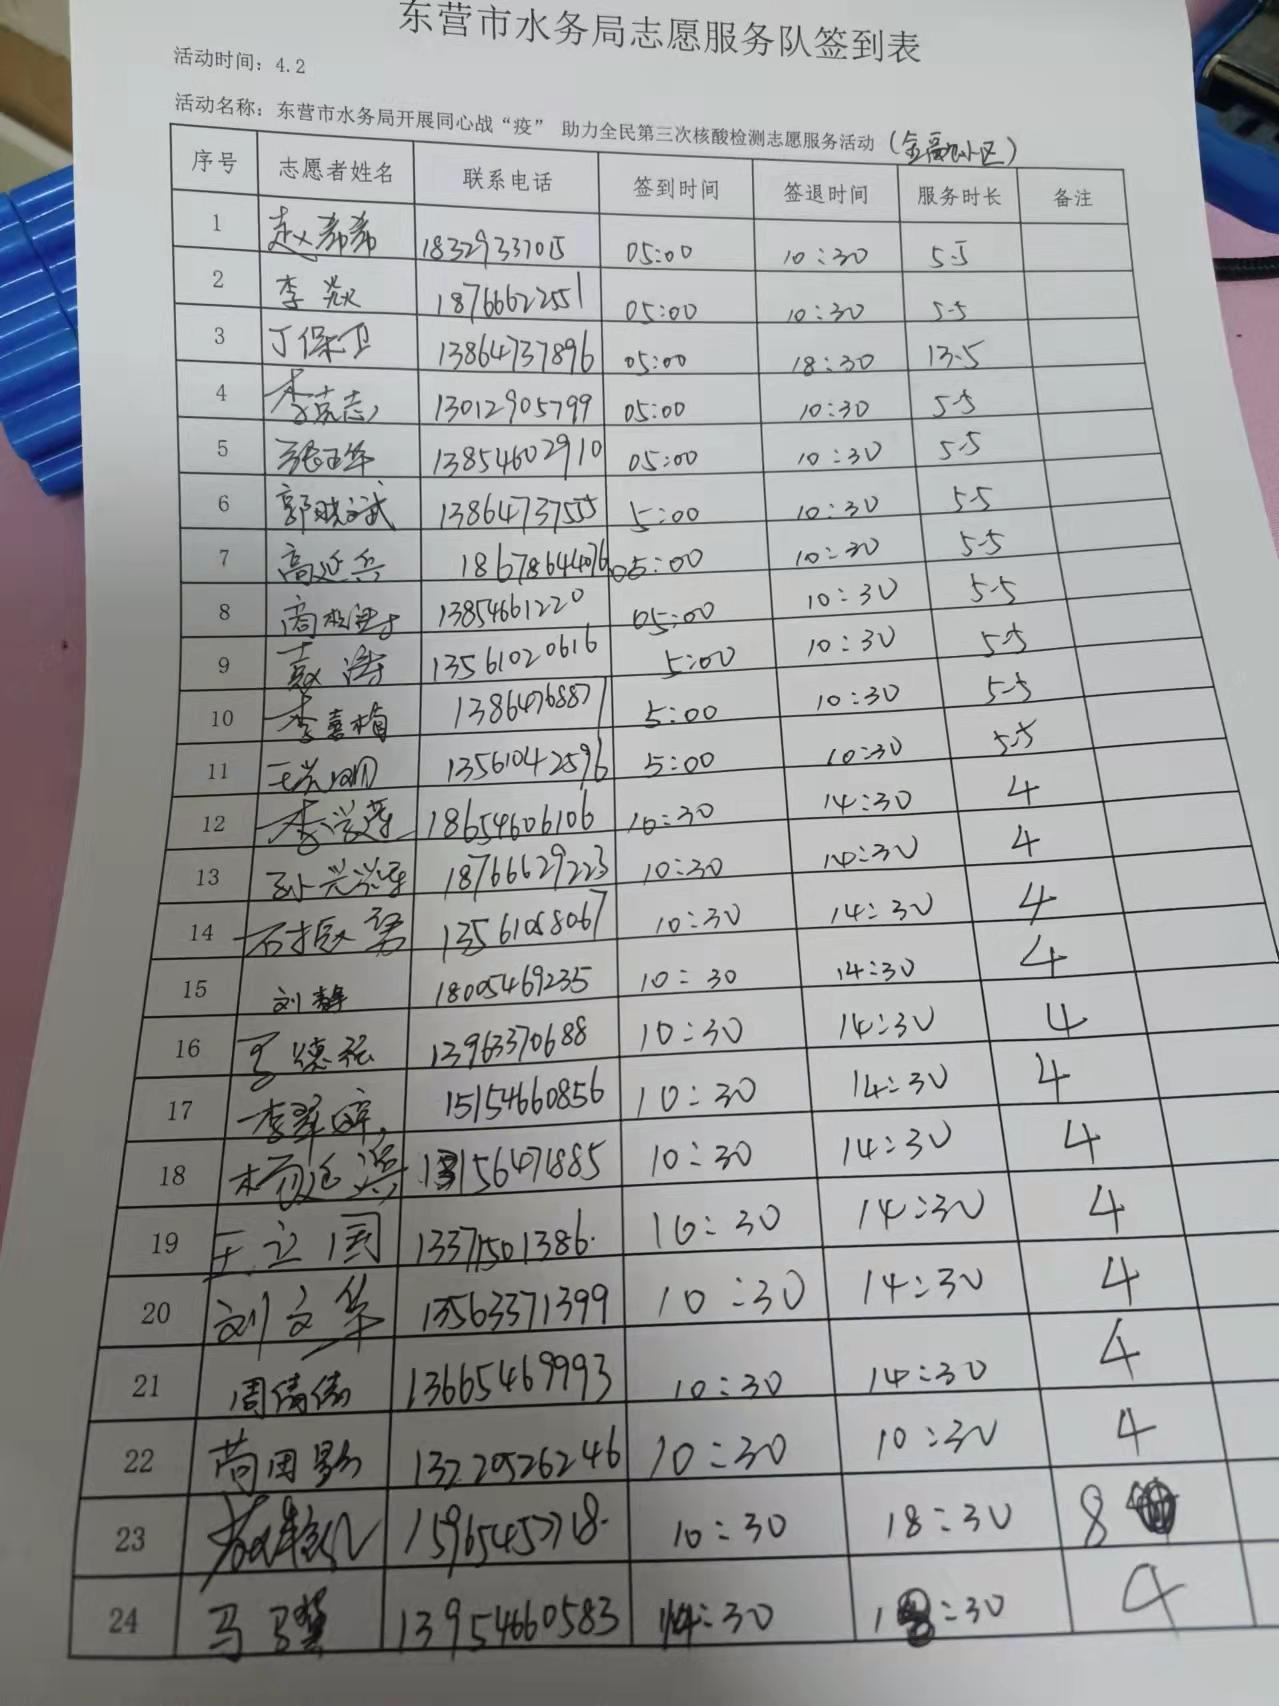 东营市水务局志愿服务队签到表
活动时间：4.2
活动名称：东营市水务局开展同心战“疫” 助力全民第三次核酸检测志愿服务活动（金融小区）
序号 志愿者姓名 联系电话 签到时间 签退时间 服务时长 备注
1 赵希希 18329337015 05:00 10:30 5.5
2 李焱 18766622551 05:00 10:30 5.5
3 丁保卫 13864737896 05:00 18:30 13.5
4 李克志 13012905799 05:00 10:30 5.5
5 张玉华 13854602910 05:00 10:30 5.5
6 郭晓斌 13864737555 5:00 10:30 5.5
7 高延兵 18678644076 05:00 10:30 5.5
8 13854661220 05:00 10:30 5.5
9 赵涛 13561020616 5:00 10:30 5.5
10 李喜梅 13864768877 5:00 10:30 5.5
11 13561042596 5:00 10:30 5.5
12 李学莲 18654606106 10:30 14:30 4
13 18766629223 10:30 14:30 4
14 石振君 13561058067 10:30 14:30 4
15 刘静 18005469235 10:30 14:30 4
16 13963370688 10:30 14:30 4
17 李翠婷 15154660856 10:30 14:30 4
18 杨延兵 10:30 14:30 4
19 王立国 13371501386 10:30 14:30 4
20 刘文华 13563371399 10:30 14:30 4
21 周倩倩 13665469993 10:30 14:30 4
22 苘田影 13220526246 10:30 10:30 4
23 10:30 18:30 8
24 马骥 13954660583 14:30 18:30 4